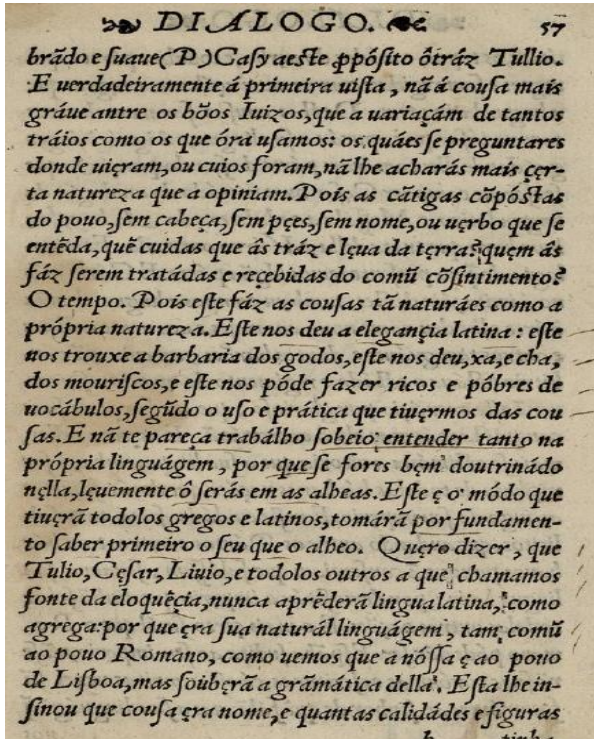 DIALOGO. 57
brãdo e suaue (P) Casy aeste ꝓpósito ô tráz Tullio.
E uerdadeiramente á primeira uista, nã á cousa mais
gráue antre os bõos Iuizos, que a uariaçám de tantos
tráios como os que óra usamos: os quáes se preguntares
donde uięram, ou cuios foram, nã lhe acharás mais cęr-
ta natureza que a opiniam. Pois as cãtigas cõpóstas
do pouo, sem cabeça, sem pęes, sem nome, ou uęrbo que se
entẽda, quẽ cuidas que âs tráz e lęua da tęrra? quem âs
fáz serem tratádas e reçebidas do comũ cõsintimento?
O tempo. Pois este fáz as cousas tã naturáes como a
própria natureza. Este nos deu a elegançia latina: este
nos trouxe a barbaria dos godos, este nos deu, xa, e cha,
dos mouriscos, e este nos póde fazer ricos e póbres de
uocábulos, segũdo o uso e prática que tiuęrmos das cou
sas. E nã te pareça trabálho sobeio entender tanto na
própria linguágem, por que se fores bęm doutrinádo
nęlla, lęuemente ô serás em as alheas. Este ę o módo que
tiuęrã todolos gregos e latinos, tomárã por fundamen-
to saber primeiro o seu que o alheo. Quęro dizer, que
Tulio, Cęsar, Liuio, e todolos outros a que chamamos
fonte da eloquẽçia, nunca aprẽderã lingua latina, como
agrega: por que ęra sua naturál linguágem, tam comũ
ao pouo Romano, como uemos que a nóssa ę ao pouo
de Lisboa, mas soubęrã a grãmática della. Esta lhe in-
sinou que cousa ęra nome, e quantas calidádes e figuras